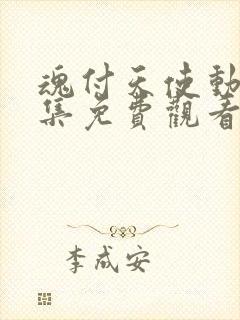 魂付天使動
集免費觀看
李成安